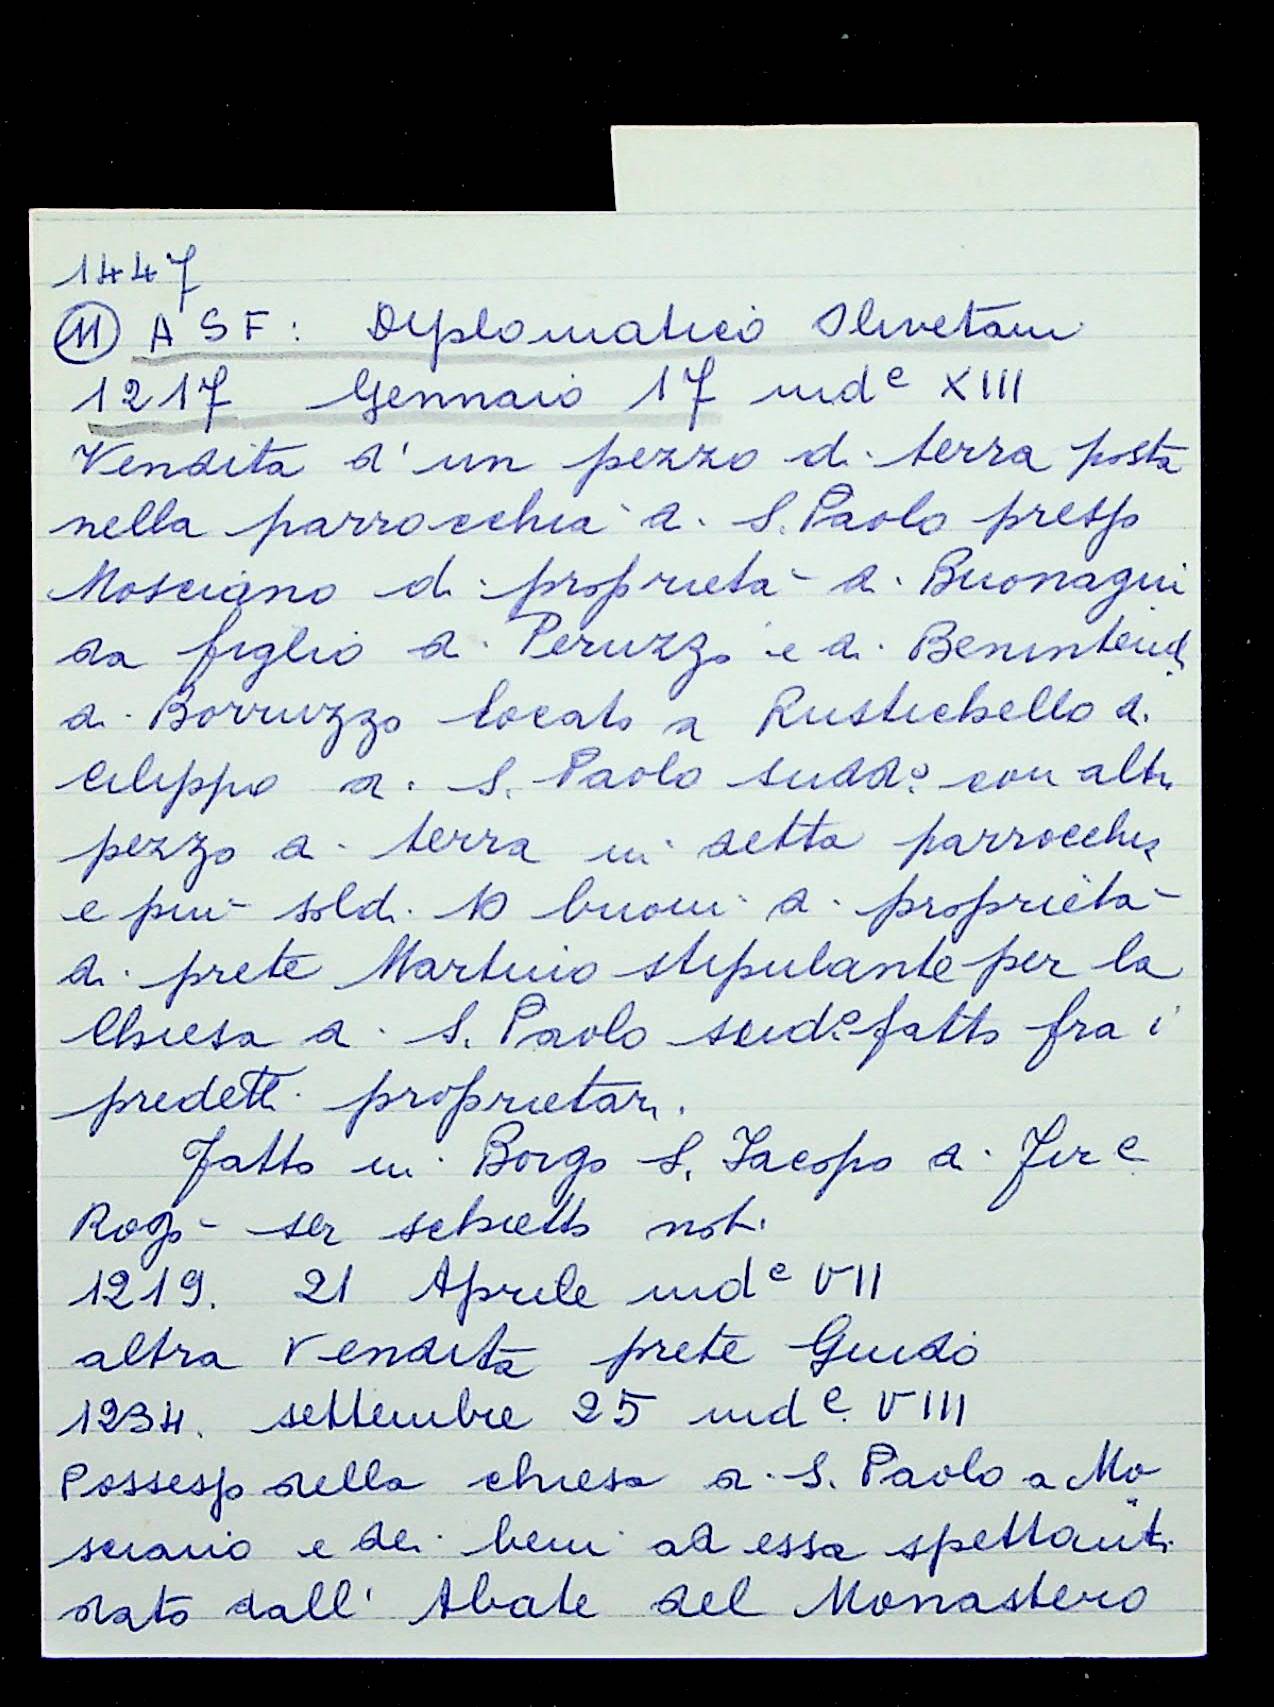 1447
11 ASF: Diplomatico Olivetani
1217 Gennaio 17 ind.e XIII
Vendita d'un pezzo di terra posta
nella parrocchia di S. Paolo presso
Mosciano di proprietà di Buonagui
da figlio di Peruzzo e di Benintendi
di Borruzzo locato a Rustichello di
Cilippo di S. Paolo sudd.o con altro
pezzo di terra in detta parrocchia
e più soldi 10 buoni di proprietà
di prete Martino stipulante per la
Chiesa di S. Paolo sud.o fatto fra i
predetti proprietari.
Fatto in Borgo S. Jacopo di Fir.e
Rogò ser schietto not.
1219. 21 Aprile ind.e VII
altra Vendita prete Guido
1234. settembre 25 ind.e VIII
Possesso della chiesa di S. Paolo a Mo
sciano e dei beni ad essa spettanti
dato dall' Abate del Monastero